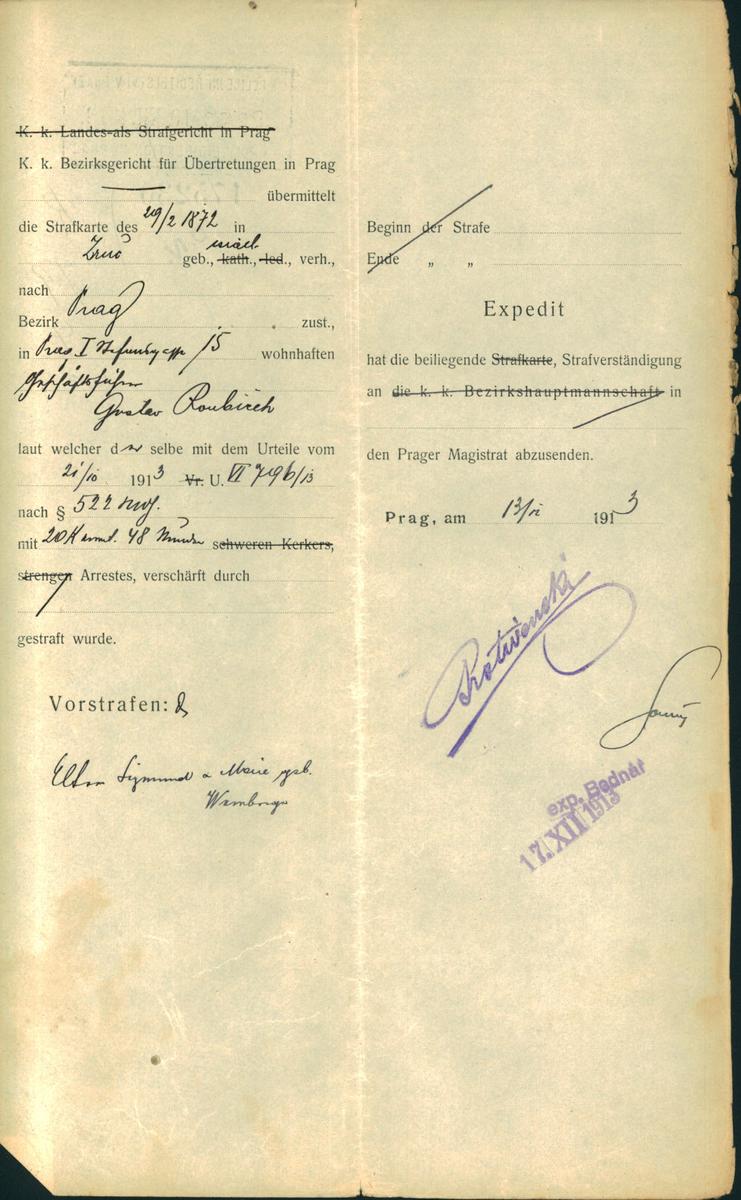 K. k. Landes-als Strafgericht in Prag
K. k. Bezirksgericht für Übertretungen in Prag
übermittelt
die Strafkarte des 29/2 1872 in
israel.
geb., kath., led., verh.,
nach
Bezirk Prag zust.,
in Prag I Stefansgasse 15 wohnhaften
Geschäftsführer
Gustav Roubicek
laut welcher der selbe mit dem Urteile vom
21/10 1913 Vr. U. VI 796/13
nach § 522
mit 20 K event. 48 Stunden schweren Kerkers,
strengen Arrestes, verschärft durch
gestraft wurde.
Vorstrafen:
Eltern Sigmund Marie geb.
Beginn der Strafe
Ende „ „
Expedit
hat die beiliegende Strafkarte, Strafverständigung
an die k. k. Bezirkshauptmannschaft in
den Prager Magistrat abzusenden.
Prag, am 13/12 1913
exp. Bednář
17. XII 1913